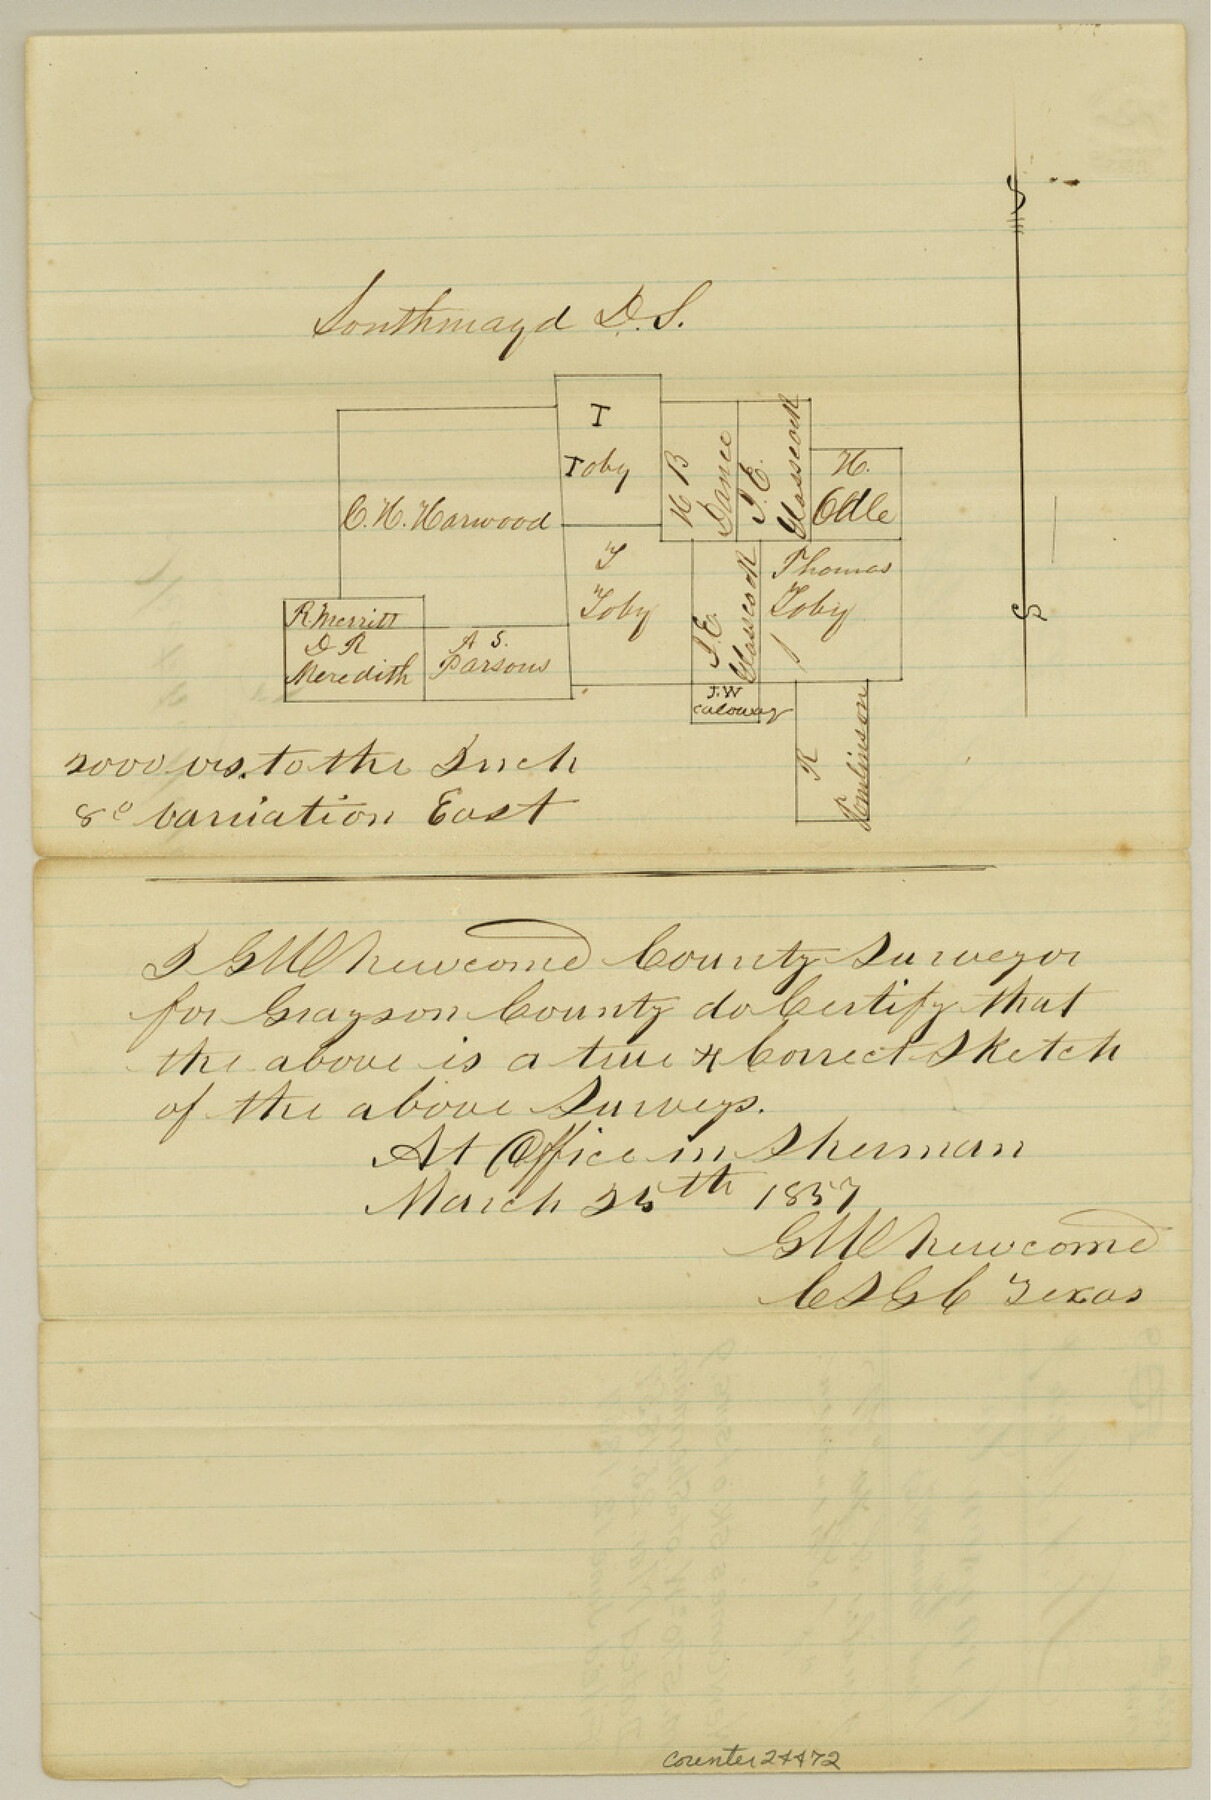 Southmayd D.S.
T
Toby
H B
Dance
J. E.
Glasscock
H.
Odle
C. H. Harwood
T
Toby
J. E.
Glasscock
Thomas
Toby
R. Merritt
D R
Meredith
A S.
Parsons
J. W
Caloway
R
Tomlinson
S
2000 vrs. to the Inch
8° variation East
I GW Newcome County Surveyor
for Grayson County do Certify that
the above is a true & Correct Sketch
of the above Surveys.
At Office in Sherman
March 25th 1857
GW Newcome
C S G C Texas
counter 24472